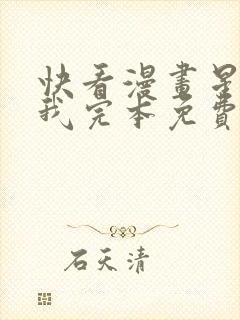 快看漫畫是
我完本免費
石天清